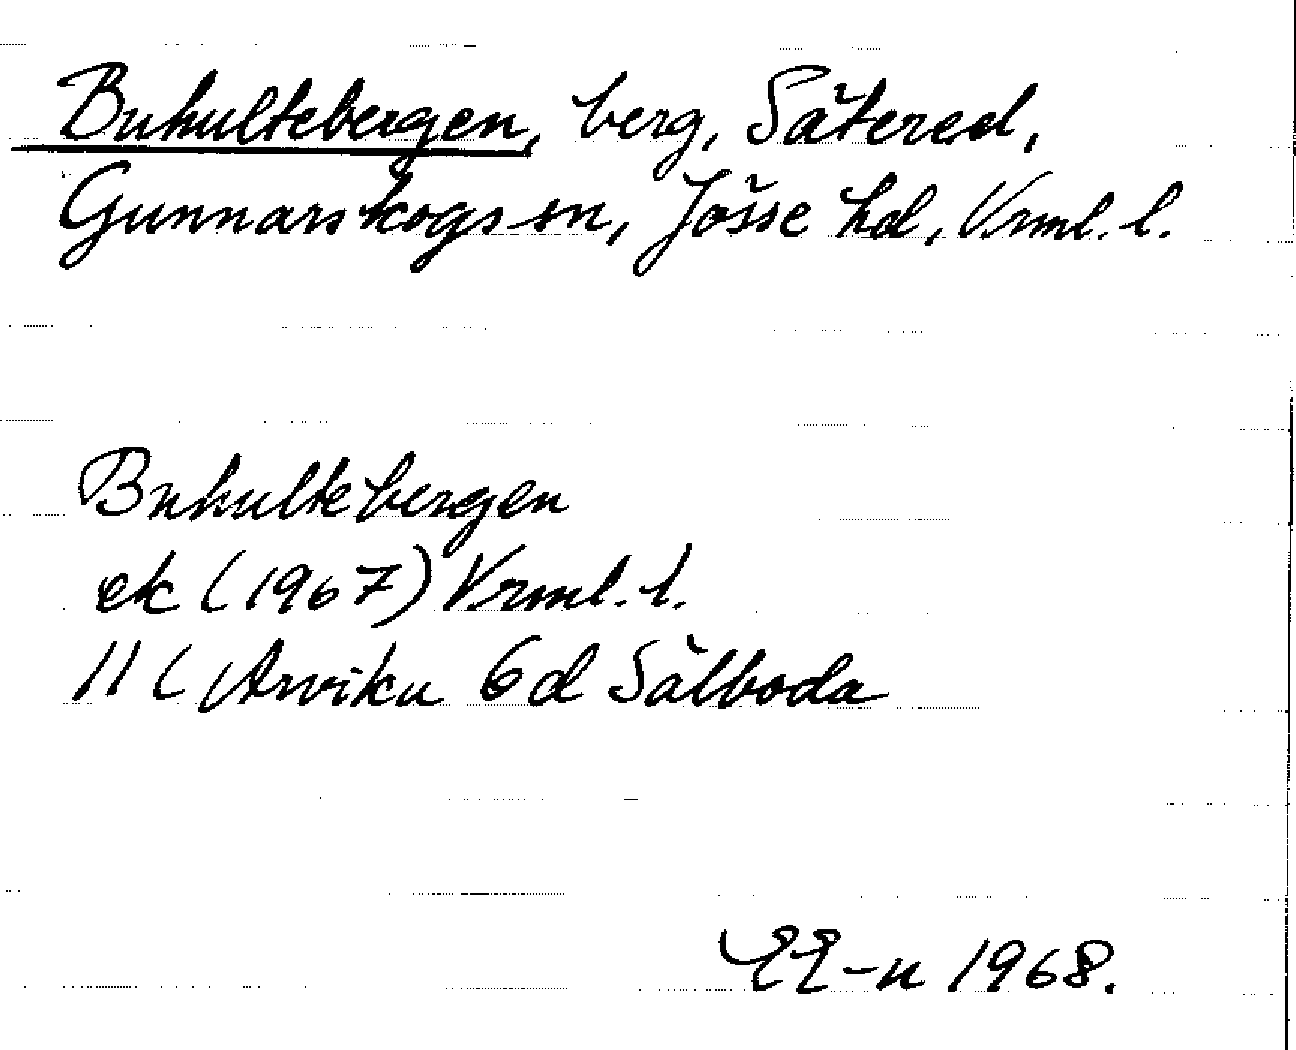 Buhultebergen, berg, Sätered,
Gunnarskogs sn, Jösse hd, Vrml. l.
Buhultebergen
ek (1967) Vrml. l.
11 C Arvika 6d Sälboda
EE-n 1968.